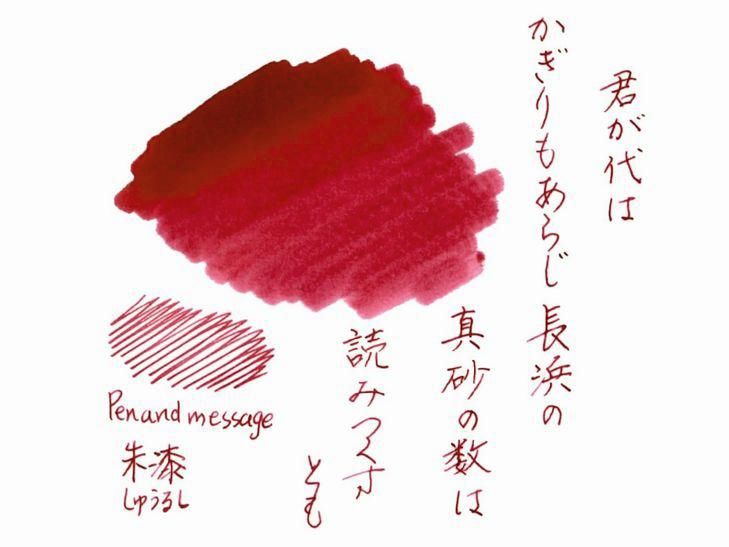 君が代は
かぎりもあらじ長浜の
真砂の数は
読みつくす
とも
Pen and message
朱漆
しゅうるし